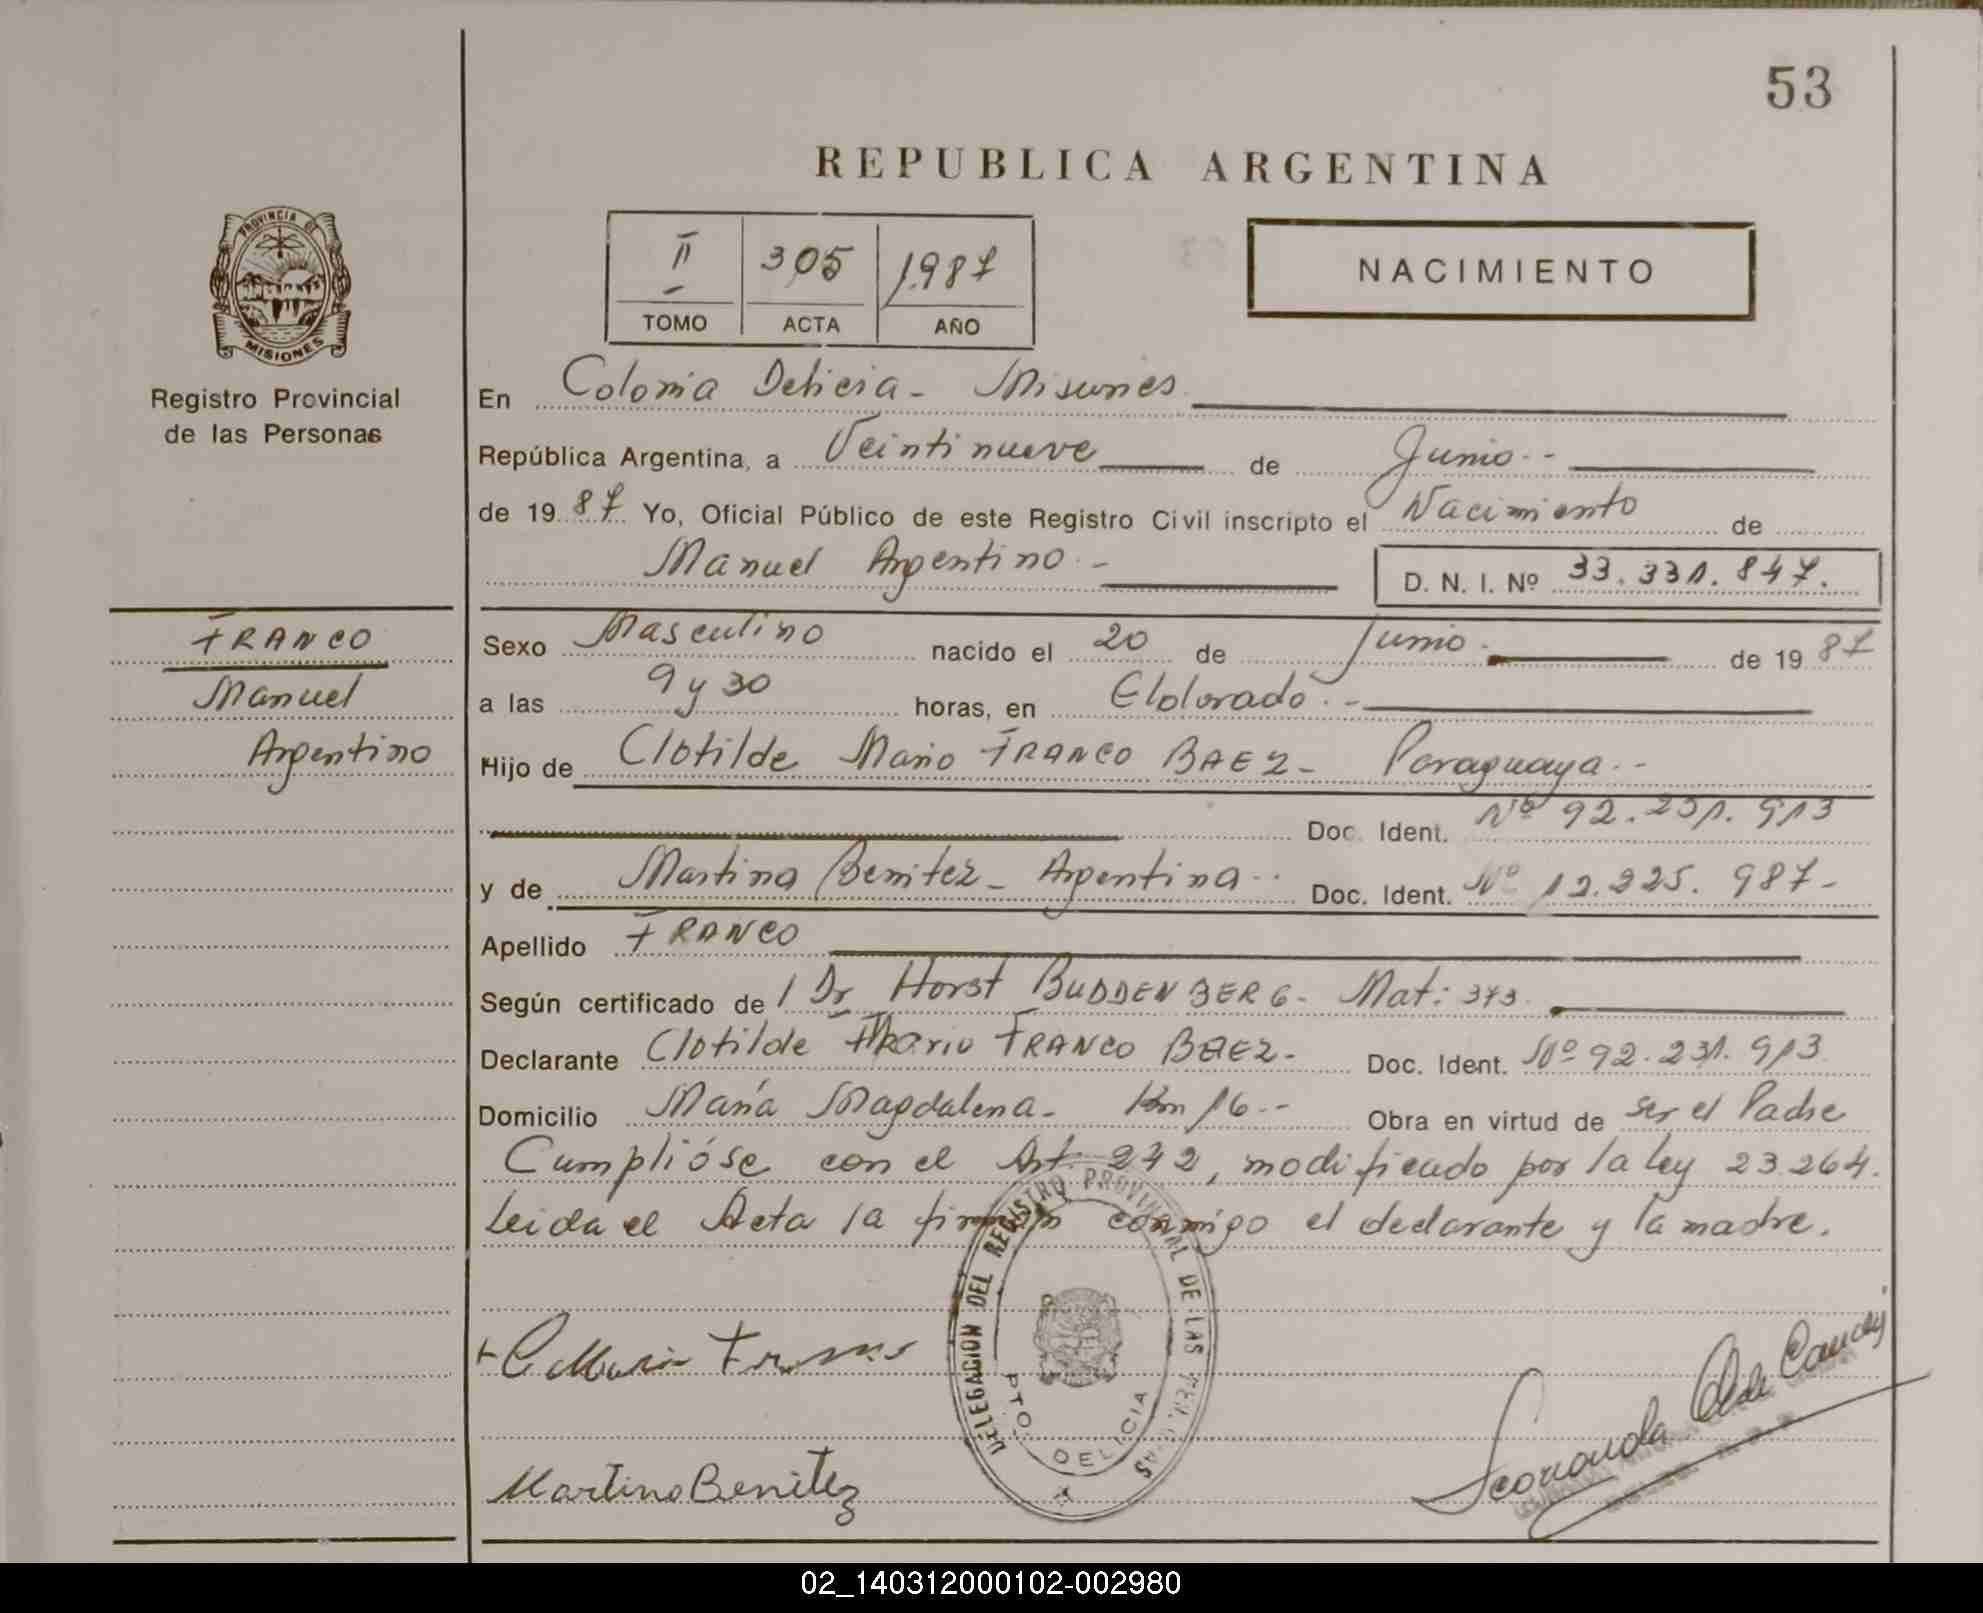 53
REPUBLICA ARGENTINA
PROVINCIA DE
MISIONES
Registro Provincial
de las Personas
II 305 1987
TOMO ACTA AÑO
NACIMIENTO
En Colonia Delicia - Misiones
República Argentina, a Veintinueve de Junio --
de 19 87 Yo, Oficial Público de este Registro Civil inscripto el Nacimiento de
Manuel Argentino - D. N. I. Nº 33.331.847.
FRANCO
Manuel
Argentino
Sexo Masculino nacido el 20 de Junio - de 19 87
a las 9 y 30 horas, en Eldorado. -
Hijo de Clotilde Mario FRANCO BAEZ - Paraguaya --
Doc. Ident. Nº 92.231.913
y de Martina Benitez - Argentina -- Doc. Ident. Nº 12.225.987 -
Apellido FRANCO
Según certificado de / Dr Horst BUDDENBERG - Mat: 373
Declarante Clotilde Mario FRANCO BAEZ - Doc. Ident. Nº 92.231.913
Domicilio María Magdalena - Km 16 -- Obra en virtud de ser el Padre
Cumplióse con el Art. 242, modificado por la ley 23.264.
Leida el Acta la firman conmigo el declarante y la madre.
DELEGACION DEL REGISTRO PROVINCIAL DE LAS
PTO. DELICIA
Martina Benitez
02_140312000102-002980